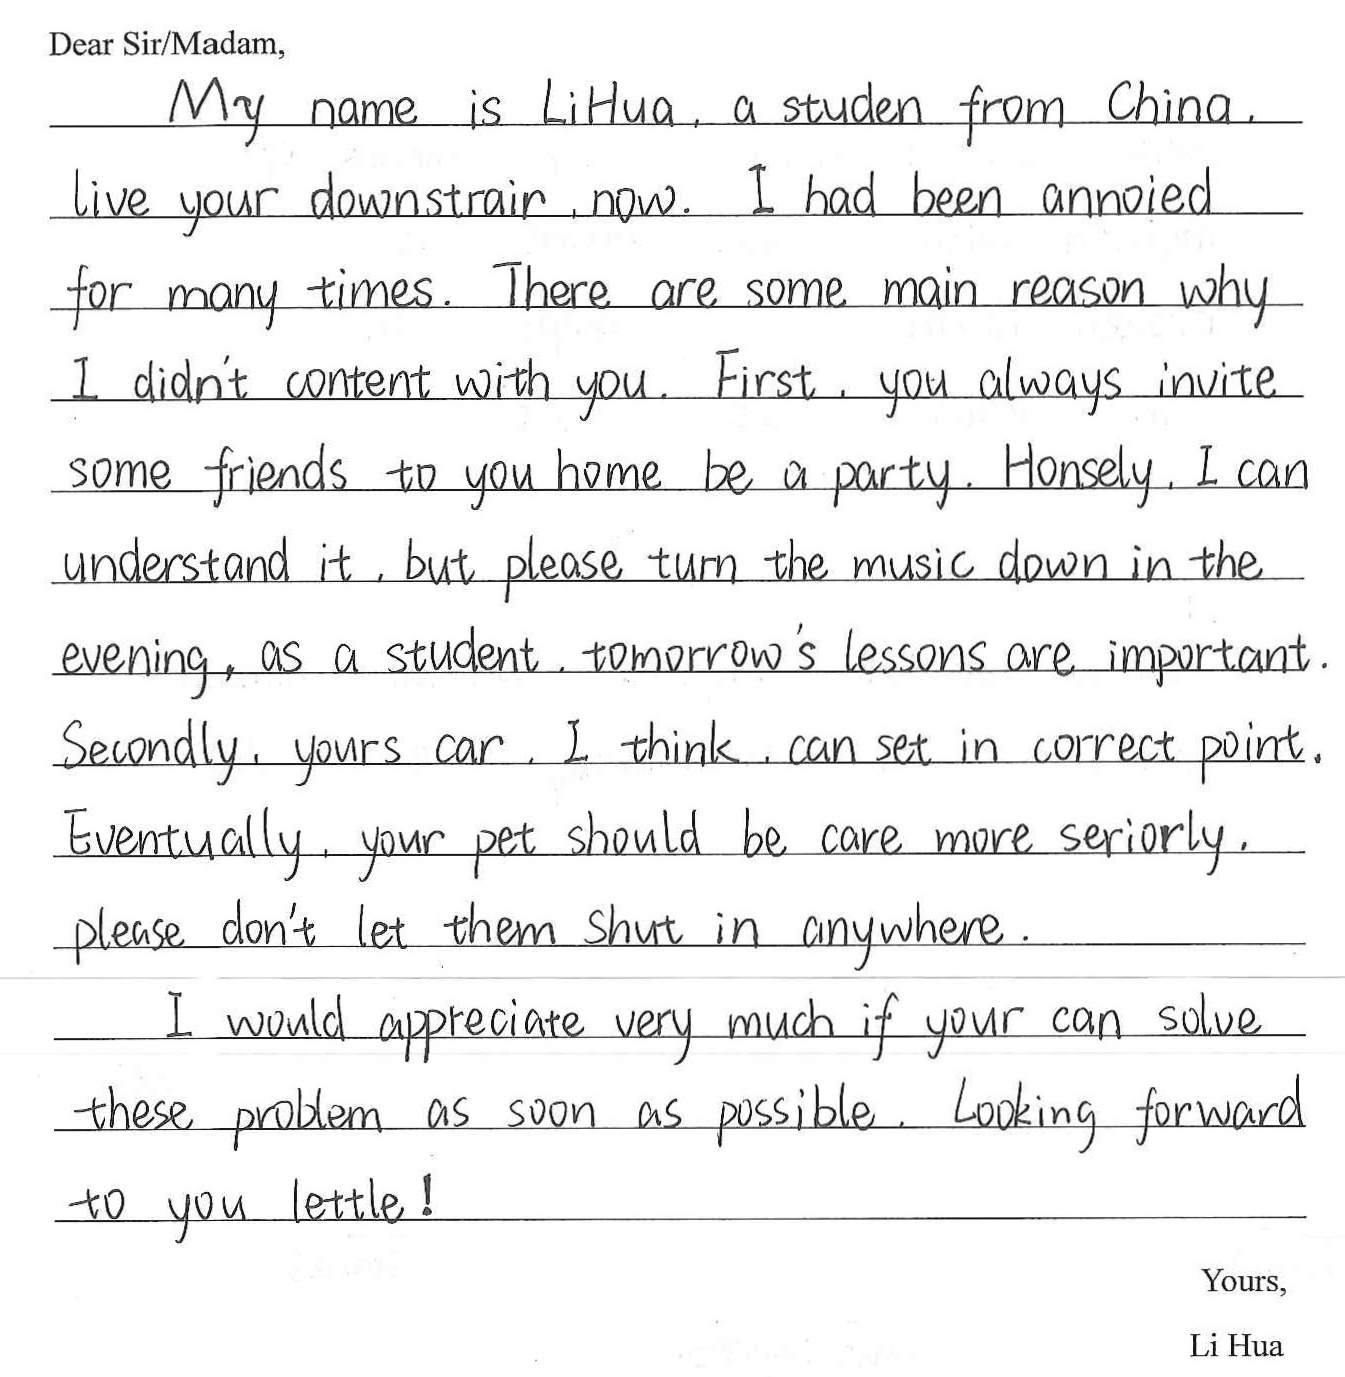 Dear Sir/Madam,
My name is LiHua, a studen from China.
live your downstrair, now. I had been annoied
for many times. There are some main reason why
I didn't content with you. First, you always invite
some friends to you home be a party. Honsely, I can
understand it, but please turn the music down in the
evening, as a student, tomorrow's lessons are important.
Secondly, yours car, I think, can set in correct point.
Eventually, your pet should be care more seriorly,
please don't let them shut in anywhere.
I would appreciate very much if your can solve
these problem as soon as possible. Looking forward
to you lettle!
Yours,
Li Hua